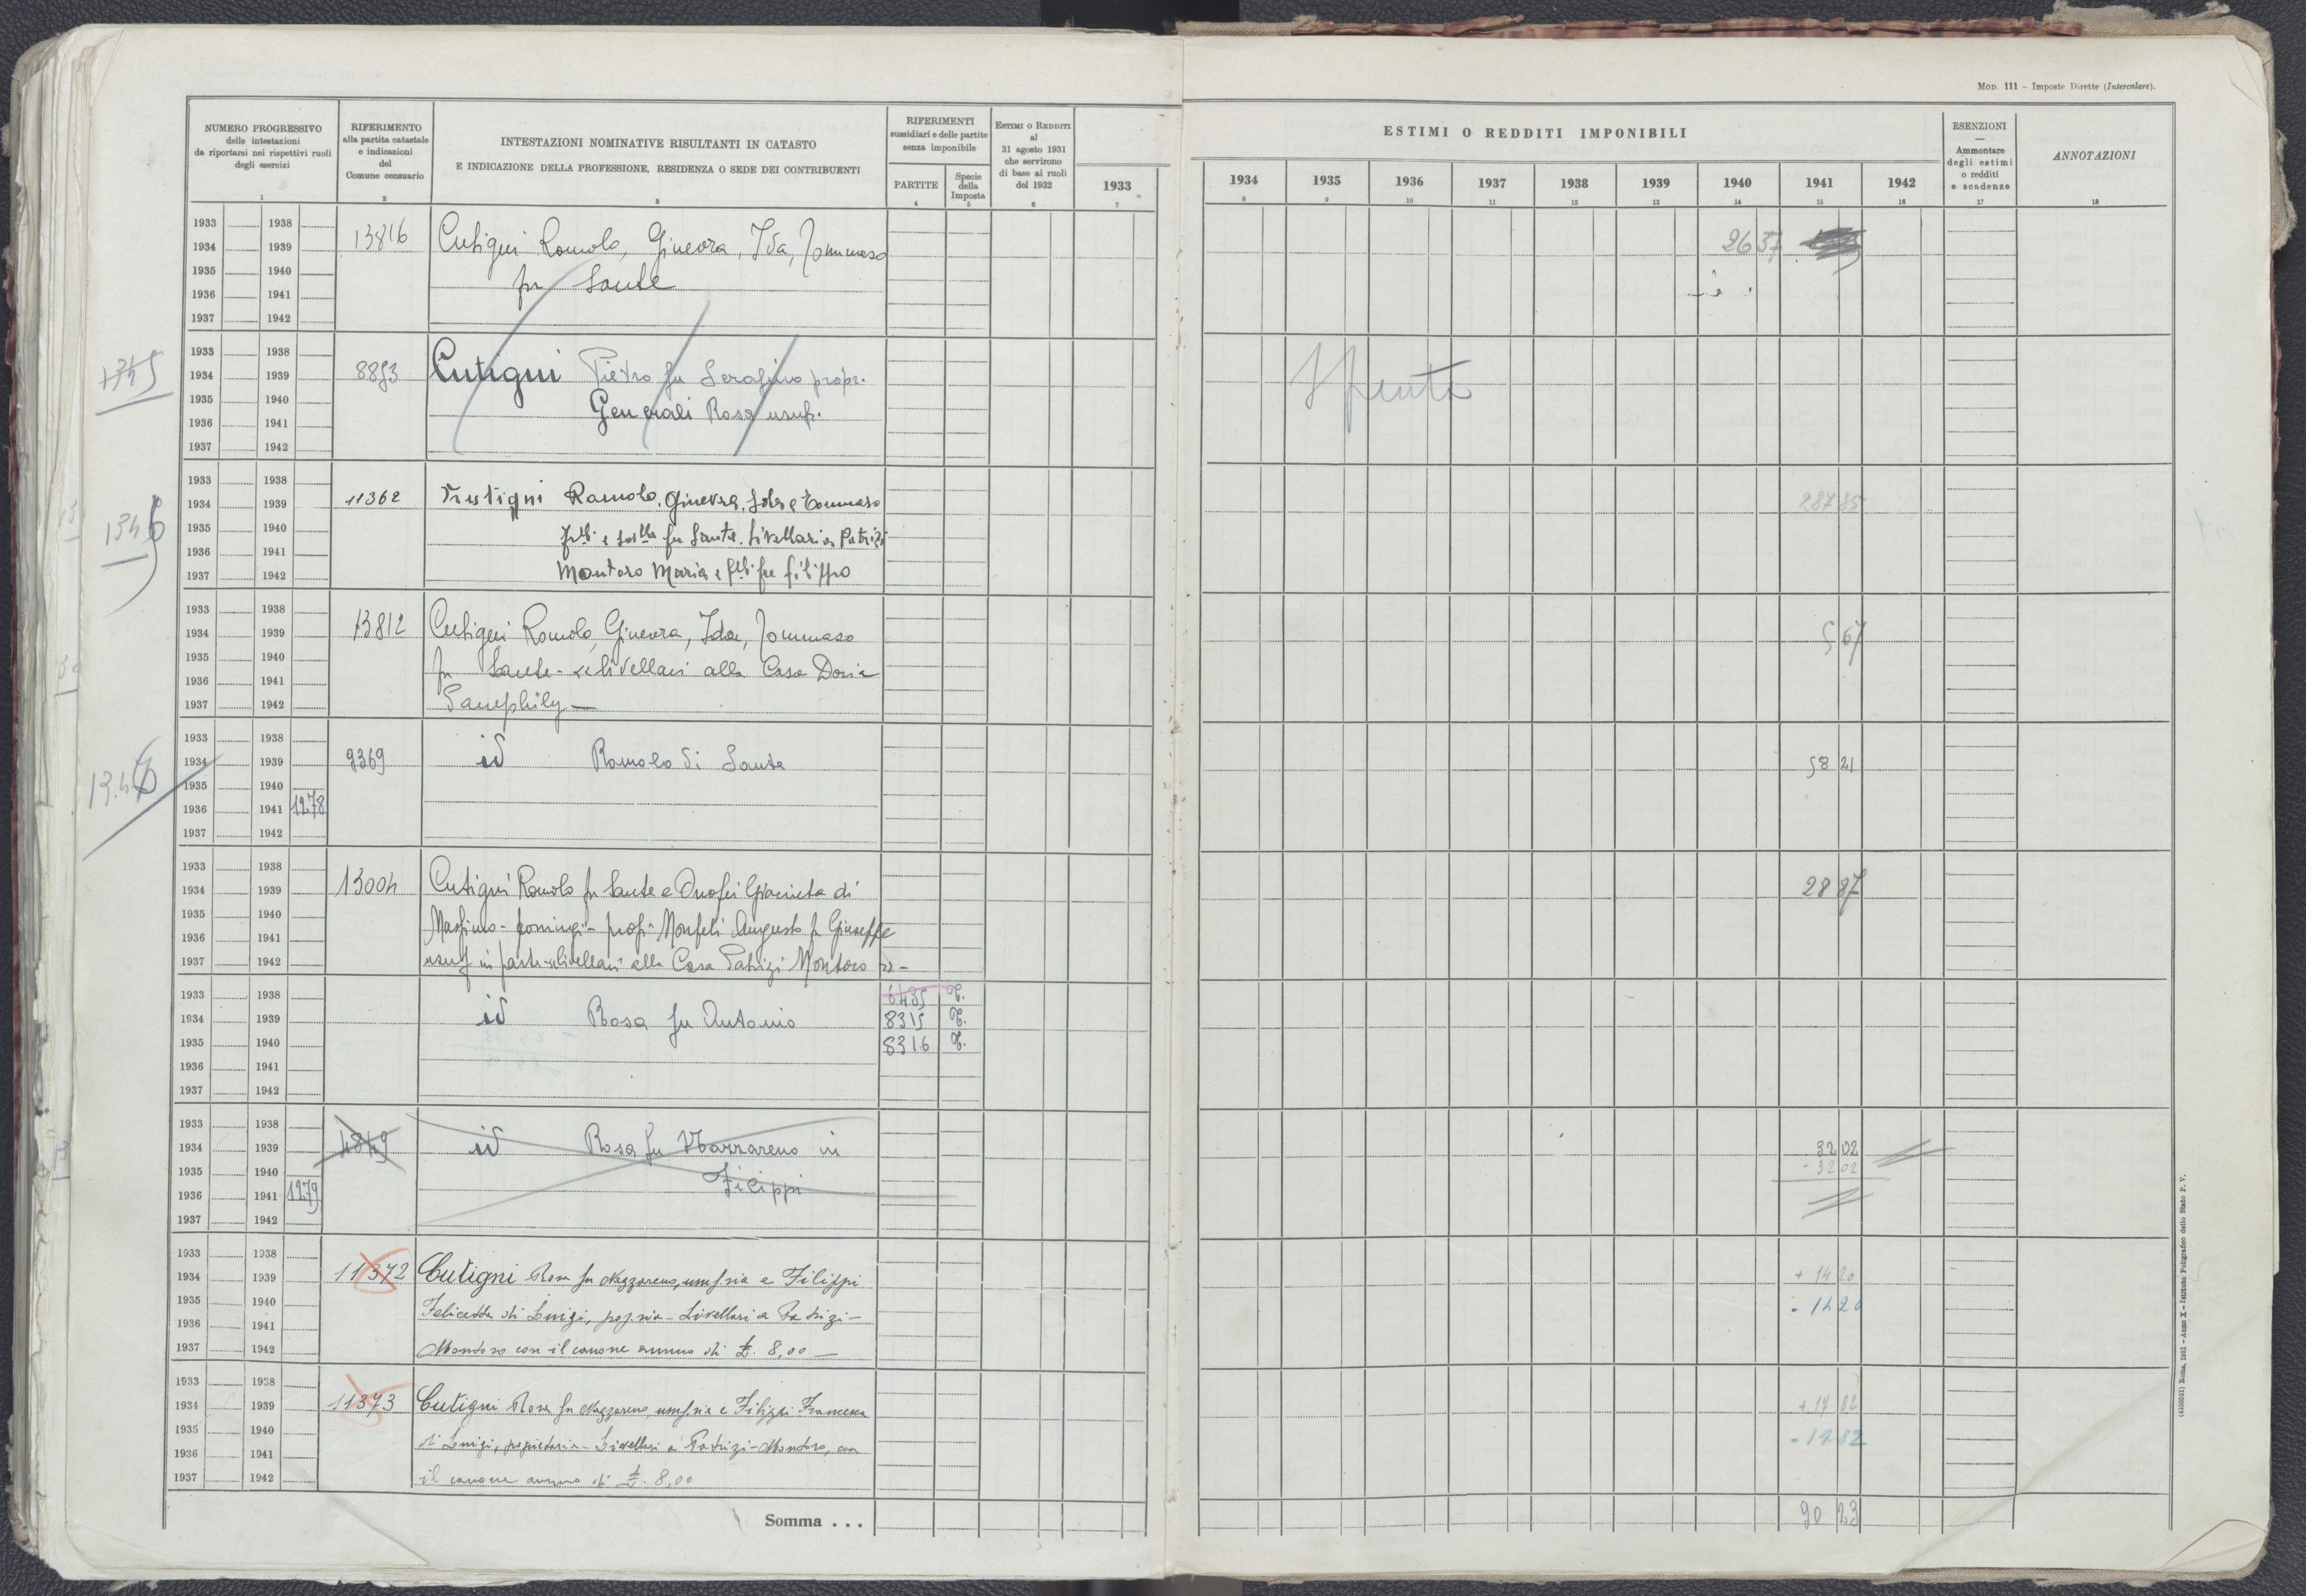 Mod. 111 - Imposte Dirette (Intercalare).
NUMERO PROGRESSIVO
delle intestazioni
da riportarsi nei rispettivi ruoli
degli esercizi
1
RIFERIMENTO
alla partita catastale
e indicazioni
del
Comune censuario
2
INTESTAZIONI NOMINATIVE RISULTANTI IN CATASTO
E INDICAZIONE DELLA PROFESSIONE, RESIDENZA O SEDE DEI CONTRIBUENTI
3
RIFERIMENTI
sussidiari e delle partite
senza imponibile
PARTITE
4
Specie
della
Imposta
5
ESTIMI O REDDITI
al
31 agosto 1931
che servirono
di base ai ruoli
del 1932
6
1933
7
ESTIMI O REDDITI IMPONIBILI
1934 1935 1936 1937 1938 1939 1940 1941 1942
8 9 10 11 12 13 14 15 16
ESENZIONI
—
Ammontare
degli estimi
o redditi
e scadenze
17
ANNOTAZIONI
18
1933 1938
1934 1939 13816 Cutigni Romolo, Ginevra, Ida, Tommaso 26 37
1935 1940 fu Sante
1936 1941
1937 1942
1345
1933 1938
1934 1939 8853 Cutigni Pietro fu Serafino propr. Spenta
1935 1940 Generali Rosa usuf.
1936 1941
1937 1942
1346
1933 1938
1934 1939 11362 Cutigni Romolo, Ginevra, Ida e Tommaso 287 85
1935 1940 flli e slle fu Sante, livellari a Patrizi
1936 1941 Montoro Maria e flli fu Filippo
1937 1942
1933 1938
1934 1939 13812 Cutigni Romolo, Ginevra, Ida, Tommaso 5 67
1935 1940 fu Sante - livellari alla Casa Doria
1936 1941
1937 1942 Pamphily -
1933 1938
1934 1939 9369 id Romolo di Sante 58 21
1935 1940
1936 1941 1278
1937 1942
1933 1938
1934 1939 13004 Cutigni Romolo fu Sante e Onofri Giacinta di 28 87
1935 1940
1936 1941 Massimo - coniugi - propr. Monfeli Augusto fu Giuseppe
1937 1942 usuf in parte - livellari alla Casa Patrizi Montoro
1933 1938 6485 T.
1934 1939 id Rosa fu Antonio 8315 T.
1935 1940 8316 T.
1936 1941
1937 1942
1933 1938
1934 1939 4849 id Rosa fu Nazzareno in 32 02
1935 1940 Filippi - 32 02
1936 1941 1279
1937 1942
1933 1938
1934 1939 11372 Cutigni Rosa fu Nazzareno, usuf.ria e Filippi + 14 20
1935 1940 Felicetta di Luigi, prop.ria - Livellari a Patrizi - - 14 20
1936 1941
1937 1942 Montoro con il canone annuo di £. 8,00 —
1933 1938
1934 1939 11373 Cutigni Rosa fu Nazzareno, usuf.ria e Filippi Francesca + 17 82
1935 1940 di Luigi, proprietaria - Livellari a Patrizi - Montoro, con - 17 82
1936 1941
1937 1942 il canone annuo di £. 8,00
Somma . . . 90 23
(4103531) Roma, 1931 - Anno X - Istituto Poligrafico dello Stato P. V.